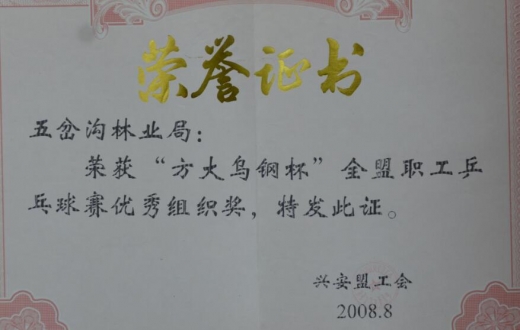 荣誉证书
五岔沟林业局：
荣获“方大乌钢杯”全盟职工乒
乓球赛优秀组织奖，特发此证。
兴安盟工会
2008.8